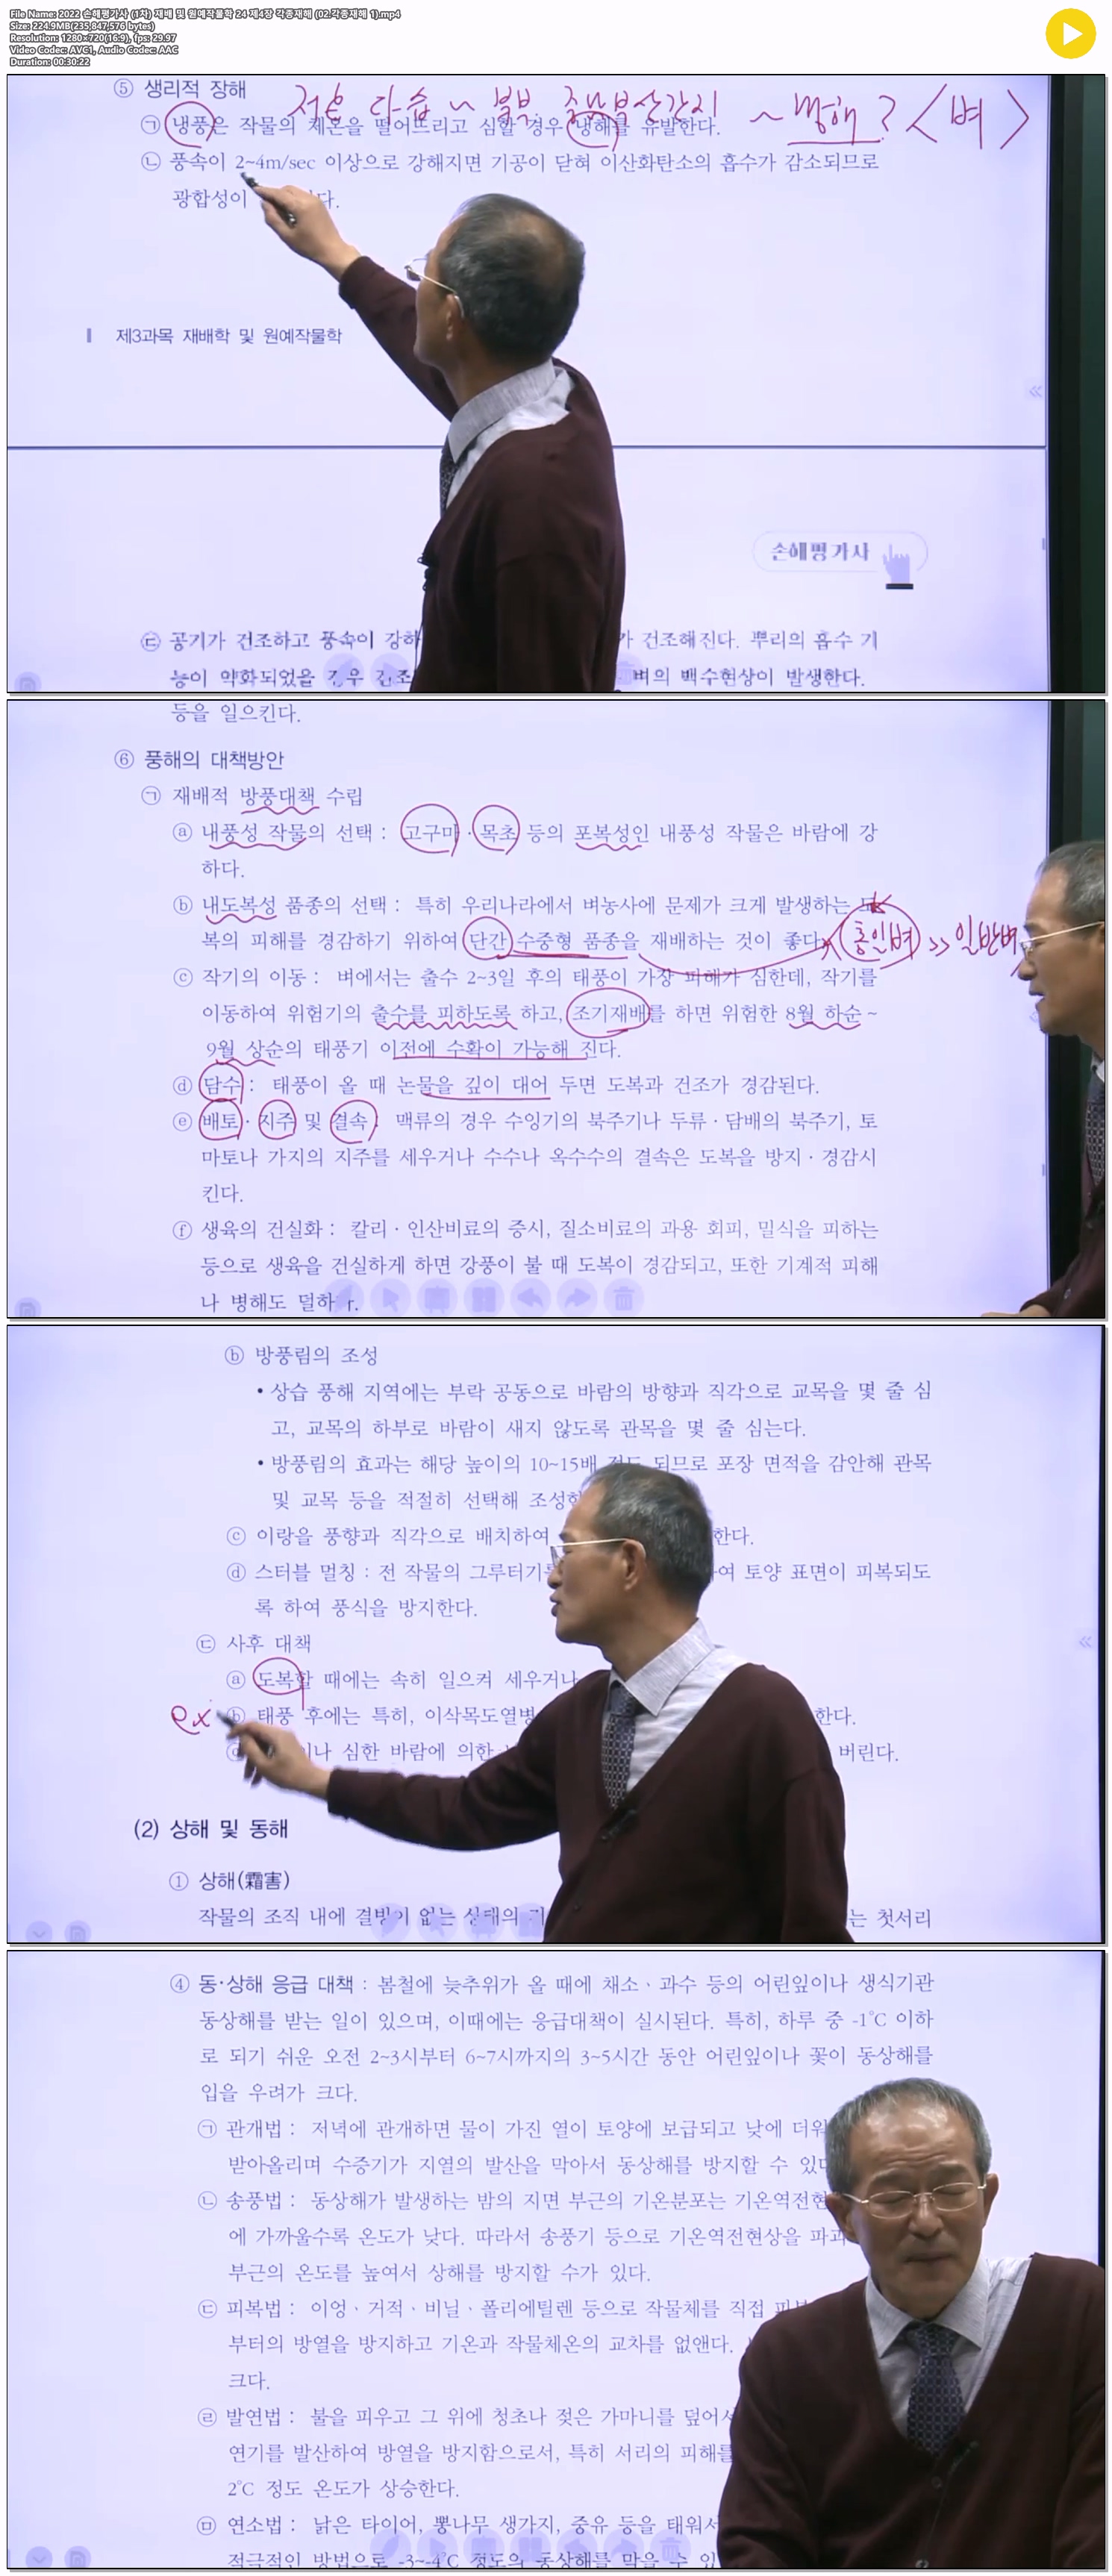 File Name: 2022 손해평가사 (1차) 재배 및 원예작물학 24 제4장 각종재해 (02.각종재해 1).mp4
Size: 224.9MB(235,847,576 bytes)
Resolution: 1280×720(16:9), fps: 29.97
Video Codec: AVC1, Audio Codec: AAC
Duration: 00:30:22
⑤ 생리적 장해
저온 다습 ~ 북부, 중남부산간지 ~ 병해? <벼>
㉠ 냉풍은 작물의 체온을 떨어뜨리고 심할 경우 냉해를 유발한다.
㉡ 풍속이 2~4m/sec 이상으로 강해지면 기공이 닫혀 이산화탄소의 흡수가 감소되므로
광합성이 다.
제3과목 재배학 및 원예작물학
손해평가사
㉢ 공기가 건조하고 풍속이 강하 가 건조해진다. 뿌리의 흡수 기
능이 약화되었을 경우 건조 벼의 백수현상이 발생한다.
등을 일으킨다.
⑥ 풍해의 대책방안
㉠ 재배적 방풍대책 수립
ⓐ 내풍성 작물의 선택 : 고구마 · 목초 등의 포복성인 내풍성 작물은 바람에 강
하다.
ⓑ 내도복성 품종의 선택 : 특히 우리나라에서 벼농사에 문제가 크게 발생하는 도
복의 피해를 경감하기 위하여 단간 수중형 품종을 재배하는 것이 좋다. 통일벼 >> 일반벼
ⓒ 작기의 이동 : 벼에서는 출수 2~3일 후의 태풍이 가장 피해가 심한데, 작기를
이동하여 위험기의 출수를 피하도록 하고, 조기재배를 하면 위험한 8월 하순~
9월 상순의 태풍기 이전에 수확이 가능해 진다.
ⓓ 담수 : 태풍이 올 때 논물을 깊이 대어 두면 도복과 건조가 경감된다.
ⓔ 배토 · 지주 및 결속 : 맥류의 경우 수잉기의 북주기나 두류 · 담배의 북주기, 토
마토나 가지의 지주를 세우거나 수수나 옥수수의 결속은 도복을 방지 · 경감시
킨다.
ⓕ 생육의 건실화 : 칼리 · 인산비료의 증시, 질소비료의 과용 회피, 밀식을 피하는
등으로 생육을 건실하게 하면 강풍이 불 때 도복이 경감되고, 또한 기계적 피해
나 병해도 덜하다.
ⓑ 방풍림의 조성
• 상습 풍해 지역에는 부락 공동으로 바람의 방향과 직각으로 교목을 몇 줄 심
고, 교목의 하부로 바람이 새지 않도록 관목을 몇 줄 심는다.
• 방풍림의 효과는 해당 높이의 10~15배 정도 되므로 포장 면적을 감안해 관목
및 교목 등을 적절히 선택해 조성한
ⓒ 이랑을 풍향과 직각으로 배치하여 한다.
ⓓ 스터블 멀칭 : 전 작물의 그루터기를 여 토양 표면이 피복되도
록 하여 풍식을 방지한다.
㉢ 사후 대책
ⓐ 도복할 때에는 속히 일으켜 세우거나
ex ⓑ 태풍 후에는 특히, 이삭목도열병 한다.
이나 심한 바람에 의한 버린다.
(2) 상해 및 동해
① 상해(霜害)
작물의 조직 내에 결빙이 없는 상태의 는 첫서리
④ 동·상해 응급 대책 : 봄철에 늦추위가 올 때에 채소 · 과수 등의 어린잎이나 생식기관
동상해를 받는 일이 있으며, 이때에는 응급대책이 실시된다. 특히, 하루 중 -1℃ 이하
로 되기 쉬운 오전 2~3시부터 6~7시까지의 3~5시간 동안 어린잎이나 꽃이 동상해를
입을 우려가 크다.
㉠ 관개법 : 저녁에 관개하면 물이 가진 열이 토양에 보급되고 낮에 더워
받아올리며 수증기가 지열의 발산을 막아서 동상해를 방지할 수 있다
㉡ 송풍법 : 동상해가 발생하는 밤의 지면 부근의 기온분포는 기온역전현
에 가까울수록 온도가 낮다. 따라서 송풍기 등으로 기온역전현상을 파괴
부근의 온도를 높여서 상해를 방지할 수가 있다.
㉢ 피복법 : 이엉 · 거적 · 비닐 · 폴리에틸렌 등으로 작물체를 직접 피복
부터의 방열을 방지하고 기온과 작물체온의 교차를 없앤다.
크다.
㉣ 발연법 : 불을 피우고 그 위에 청초나 젖은 가마니를 덮어서
연기를 발산하여 방열을 방지함으로서, 특히 서리의 피해를
2℃ 정도 온도가 상승한다.
㉤ 연소법 : 낡은 타이어, 뽕나무 생가지, 중유 등을 태워서
적극적인 방법으로 -3~-4℃ 정도의 동상해를 막을 수 있